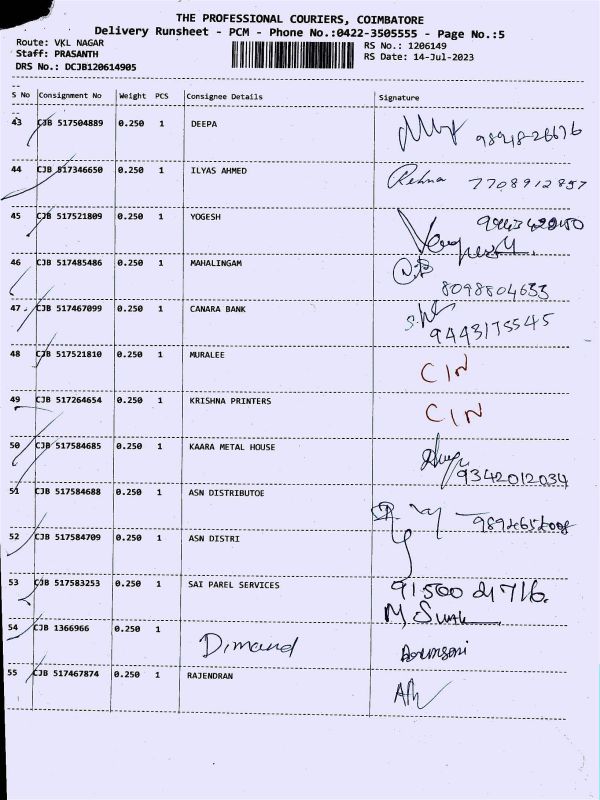 THE PROFESSIONAL COURIERS, COIMBATORE
Delivery Runsheet - PCM - Phone No.:0422-3505555 - Page No.:5
Route: VKL NAGAR RS No.: 1206149
Staff: PRASANTH RS Date: 14-Jul-2023
DRS No.: DCJB120614905
S No Consignment No Weight PCS Consignee Details Signature
43 CJB 517504889 0.250 1 DEEPA
44 CJB 517346650 0.250 1 ILYAS AHMED Rehna 7708912857
45 CJB 517521809 0.250 1 YOGESH
46 CJB 517485486 0.250 1 MAHALINGAM
8098804633
47 CJB 517467099 0.250 1 CANARA BANK
9443175545
48 CJB 517521810 0.250 1 MURALEE CIN
49 CJB 517264654 0.250 1 KRISHNA PRINTERS CIN
50 CJB 517584685 0.250 1 KAARA METAL HOUSE
9342012034
51 CJB 517584688 0.250 1 ASN DISTRIBUTOE
52 CJB 517584709 0.250 1 ASN DISTRI
53 CJB 517583253 0.250 1 SAI PAREL SERVICES
54 CJB 1366966 0.250 1 Dimand
55 CJB 517467874 0.250 1 RAJENDRAN